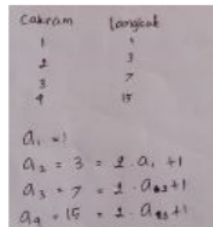 Cakram Langkah
1 1
2 3
3 7
4 15
a₁ = 1
a₂ = 3 = 2 . a₁ + 1
a₃ = 7 = 2 . a₂ + 1
a₄ = 15 = 2 . a₃ + 1